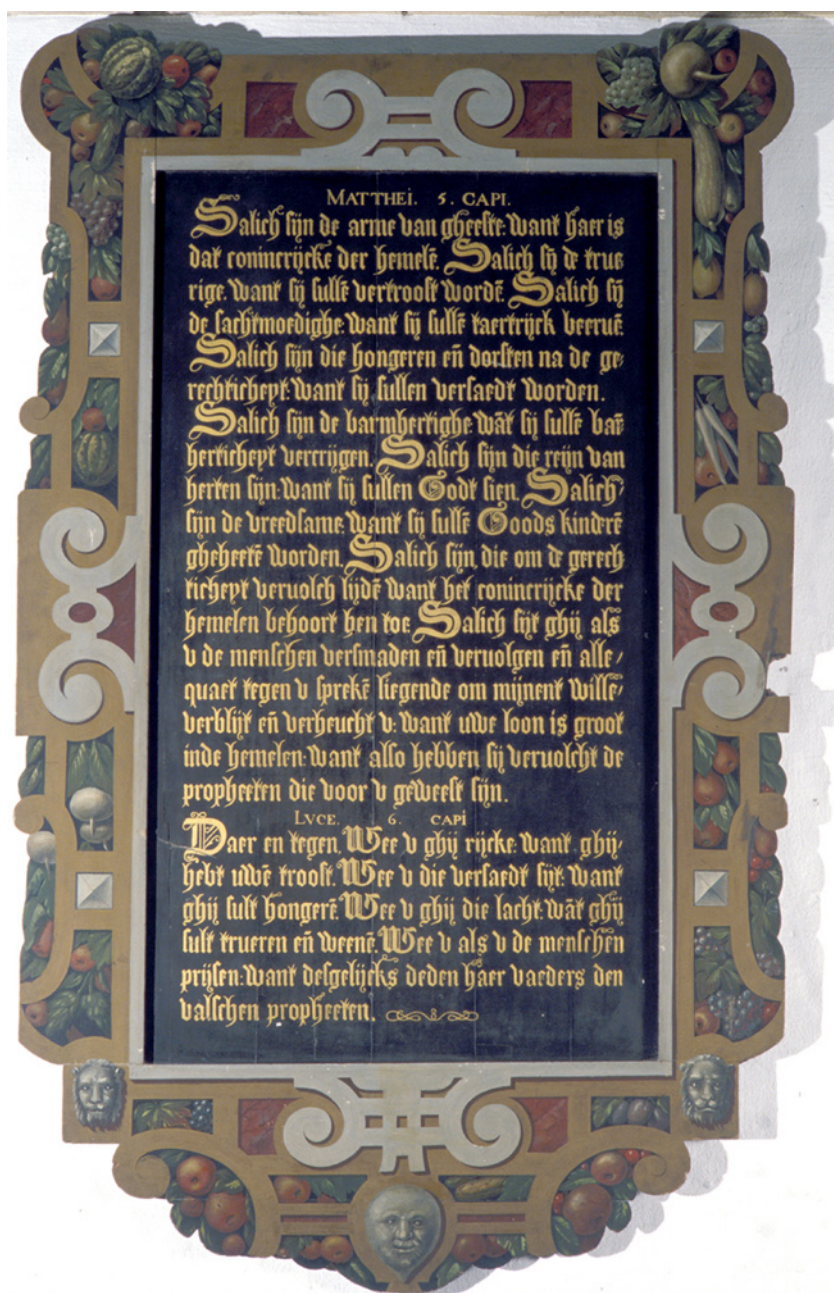 MATTHEI. 5. CAPI.
Salich sijn de arme van gheeste: want haer is
dat conincrijcke der hemelē. Salich sij de true
rige. want sij sullē vertroost wordē. Salich sijn
de sachtmoedighe: want sij sullē taertrijck beeruē.
Salich sijn die hongeren eñ dorsten na de ge-
rechticheyt: want sij sullen versaedt worden.
Salich sijn de barmhertighe: wāt sij sullē barm
herticheyt vercrijgen. Salich sijn die reijn van
herten sijn: want sij sullen Godt sien. Salich
sijn de vreedsame: want sij sullē Goods kinderē
gheheetē worden. Salich sijn, die om de gerech
ticheyt veruolch lijdē want het conincrijcke der
hemelen behoort hen toe. Salich sijt ghij als
v de menschen versmaden eñ veruolgen eñ alle
quaet tegen v sprekē liegende om mijnent wille
verblijt eñ verheucht v: want uwe loon is groot
inde hemelen: want also hebben sij veruolcht de
propheeten die voor v geweest sijn.
LVCE. 6. CAPI
Daer en tegen. Wee v ghij rijcke: want ghij
hebt uwē troost. Wee v die versaedt sijt: want
ghij sult hongerē. Wee v ghij die lacht: wāt ghij
sult trueren eñ weenē. Wee v als v de menschen
prijsen: want desgelijcks deden haer vaeders den
valschen propheeten.